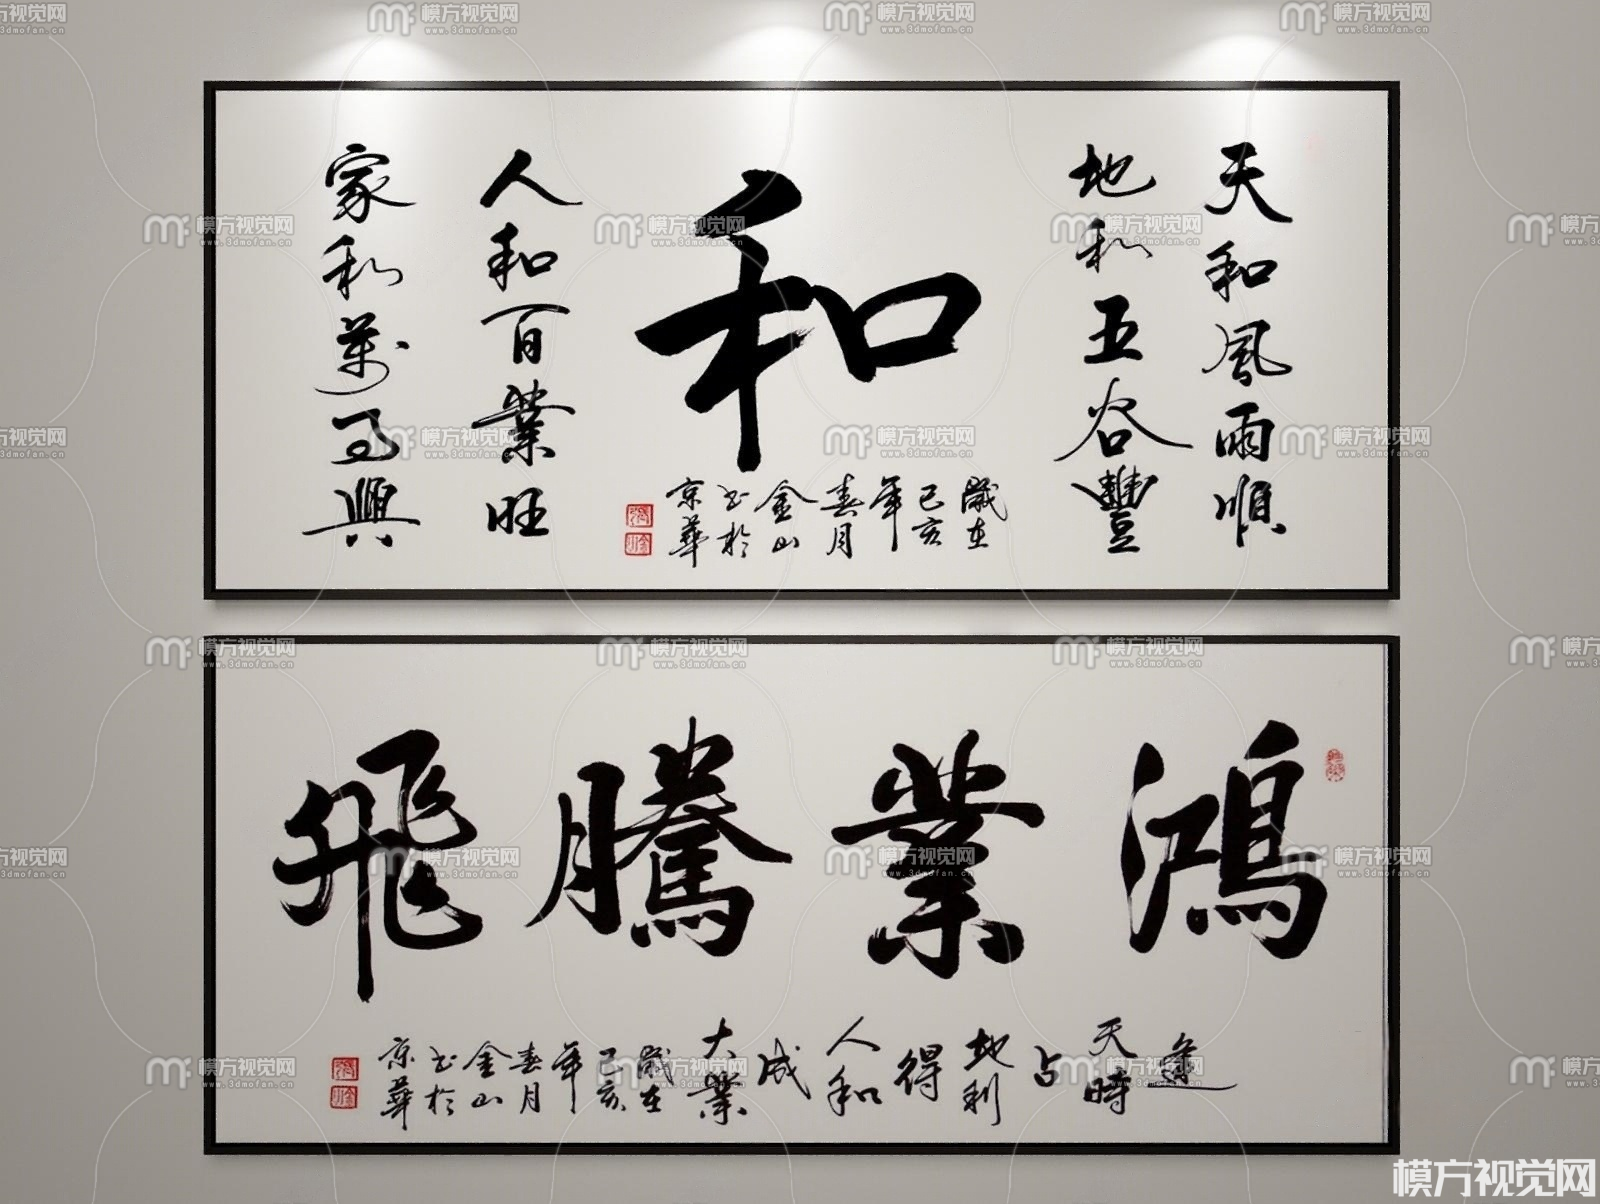 天和風雨順
地和五谷豐
和
人和百業旺
家和萬事興
歲在
己亥
年
春月
金山
书於
京華
鴻業騰飛
逢
天時
占
地利
得
人和
成
大業
歲在
己亥
年
春月
金山
书於
京華
模方视觉网
www.3dmofan.cn